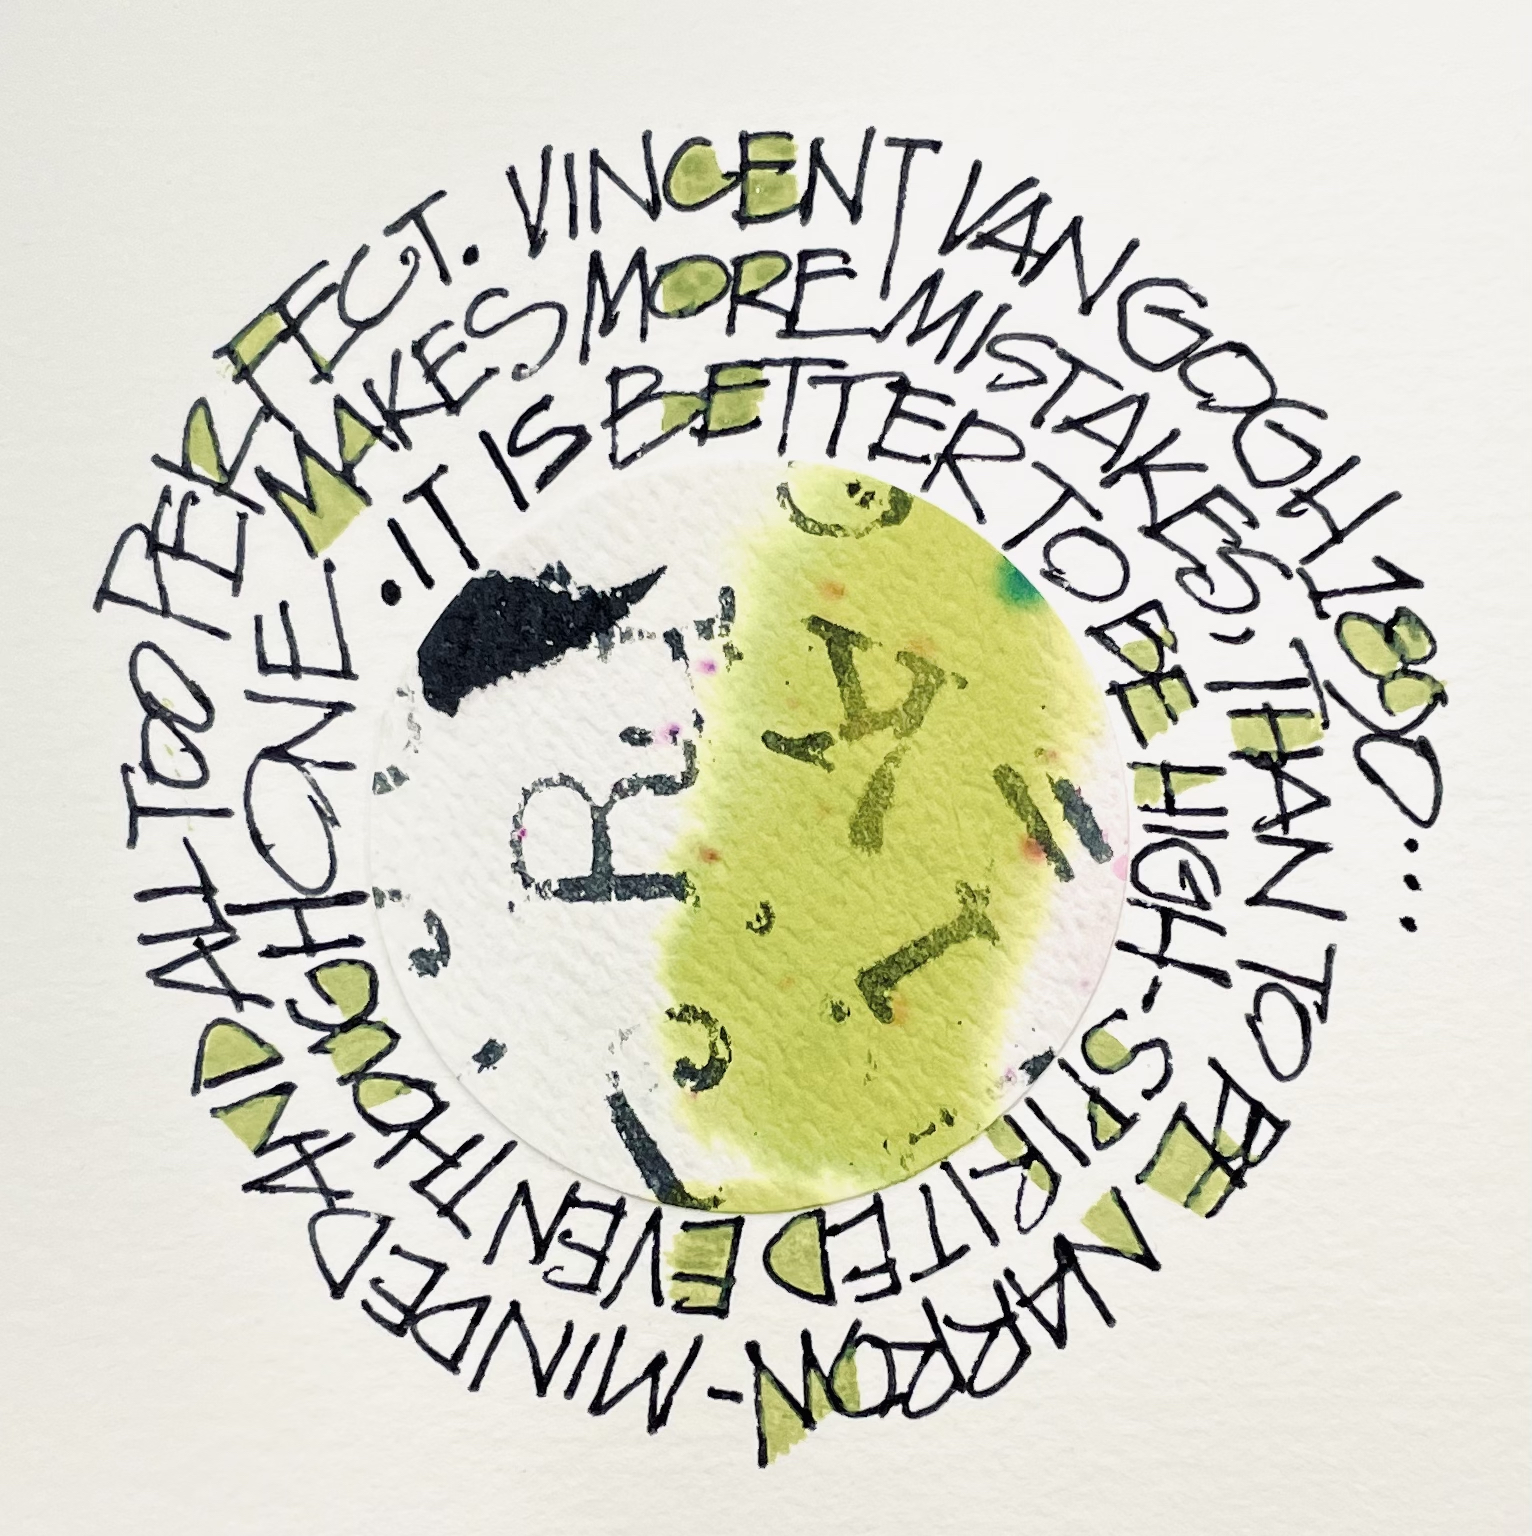 .IT IS BETTER TO BE HIGH-SPIRITED EVEN THOUGH ONE
MAKES MORE MISTAKES, THAN TO BE NARROW-MINDED AND ALL TOO PERFECT.
VINCENT VAN GOGH 1890...
R
A
L